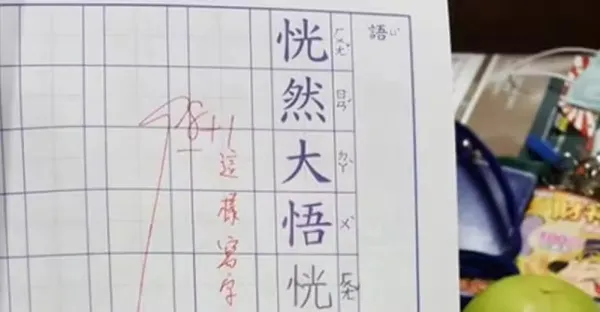 語
恍然大悟
ㄏㄨㄤˇ
ㄖㄢˊ
ㄉㄚˋ
ㄨˋ
恍
ㄏㄨㄤˇ
98+1
這樣寫字